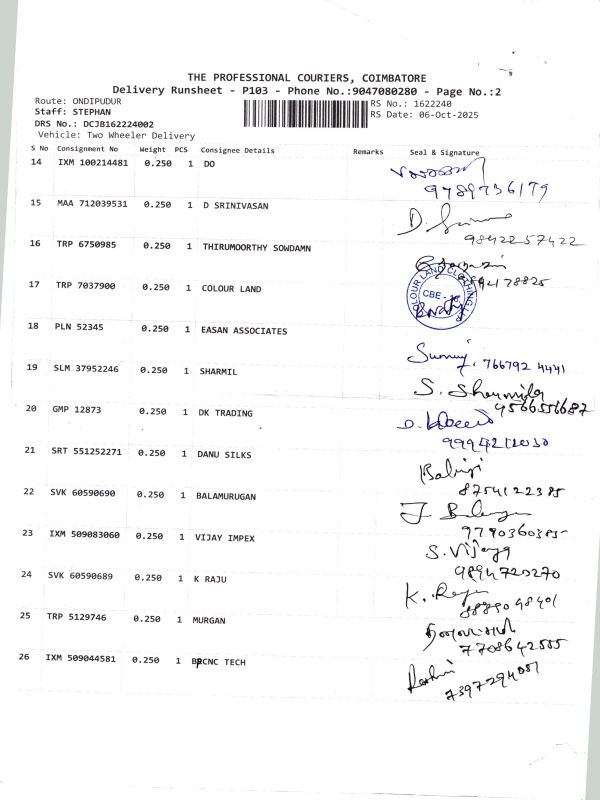 THE PROFESSIONAL COURIERS, COIMBATORE
Delivery Runsheet - P103 - Phone No.:9047080280 - Page No.:2
Route: ONDIPUDUR
RS No.: 1622240
Staff: STEPHAN
RS Date: 06-Oct-2025
DRS No.: DCJB162224002
Vehicle: Two Wheeler Delivery
S No Consignment No Weight PCS Consignee Details Remarks Seal & Signature
14 IXM 100214481 0.250 1 DO
9789736179
15 MAA 712039531 0.250 1 D SRINIVASAN
D.
9842257422
16 TRP 6750985 0.250 1 THIRUMOORTHY SOWDAMN
17 TRP 7037900 0.250 1 COLOUR LAND
COLOUR LAND CLOTHING
CBE
18 PLN 52345 0.250 1 EASAN ASSOCIATES
766792 4441
19 SLM 37952246 0.250 1 SHARMIL
S. Sharmila
9566556687
20 GMP 12873 0.250 1 DK TRADING
9994212030
21 SRT 551252271 0.250 1 DANU SILKS
8754122385
22 SVK 60590690 0.250 1 BALAMURUGAN
9790360385
23 IXM 509083060 0.250 1 VIJAY IMPEX
S. Vijaya
9894720270
24 SVK 60590689 0.250 1 K RAJU
K. Raju
25 TRP 5129746 0.250 1 MURGAN
7708642555
26 IXM 509044581 0.250 1 BRCNC TECH
7397294051